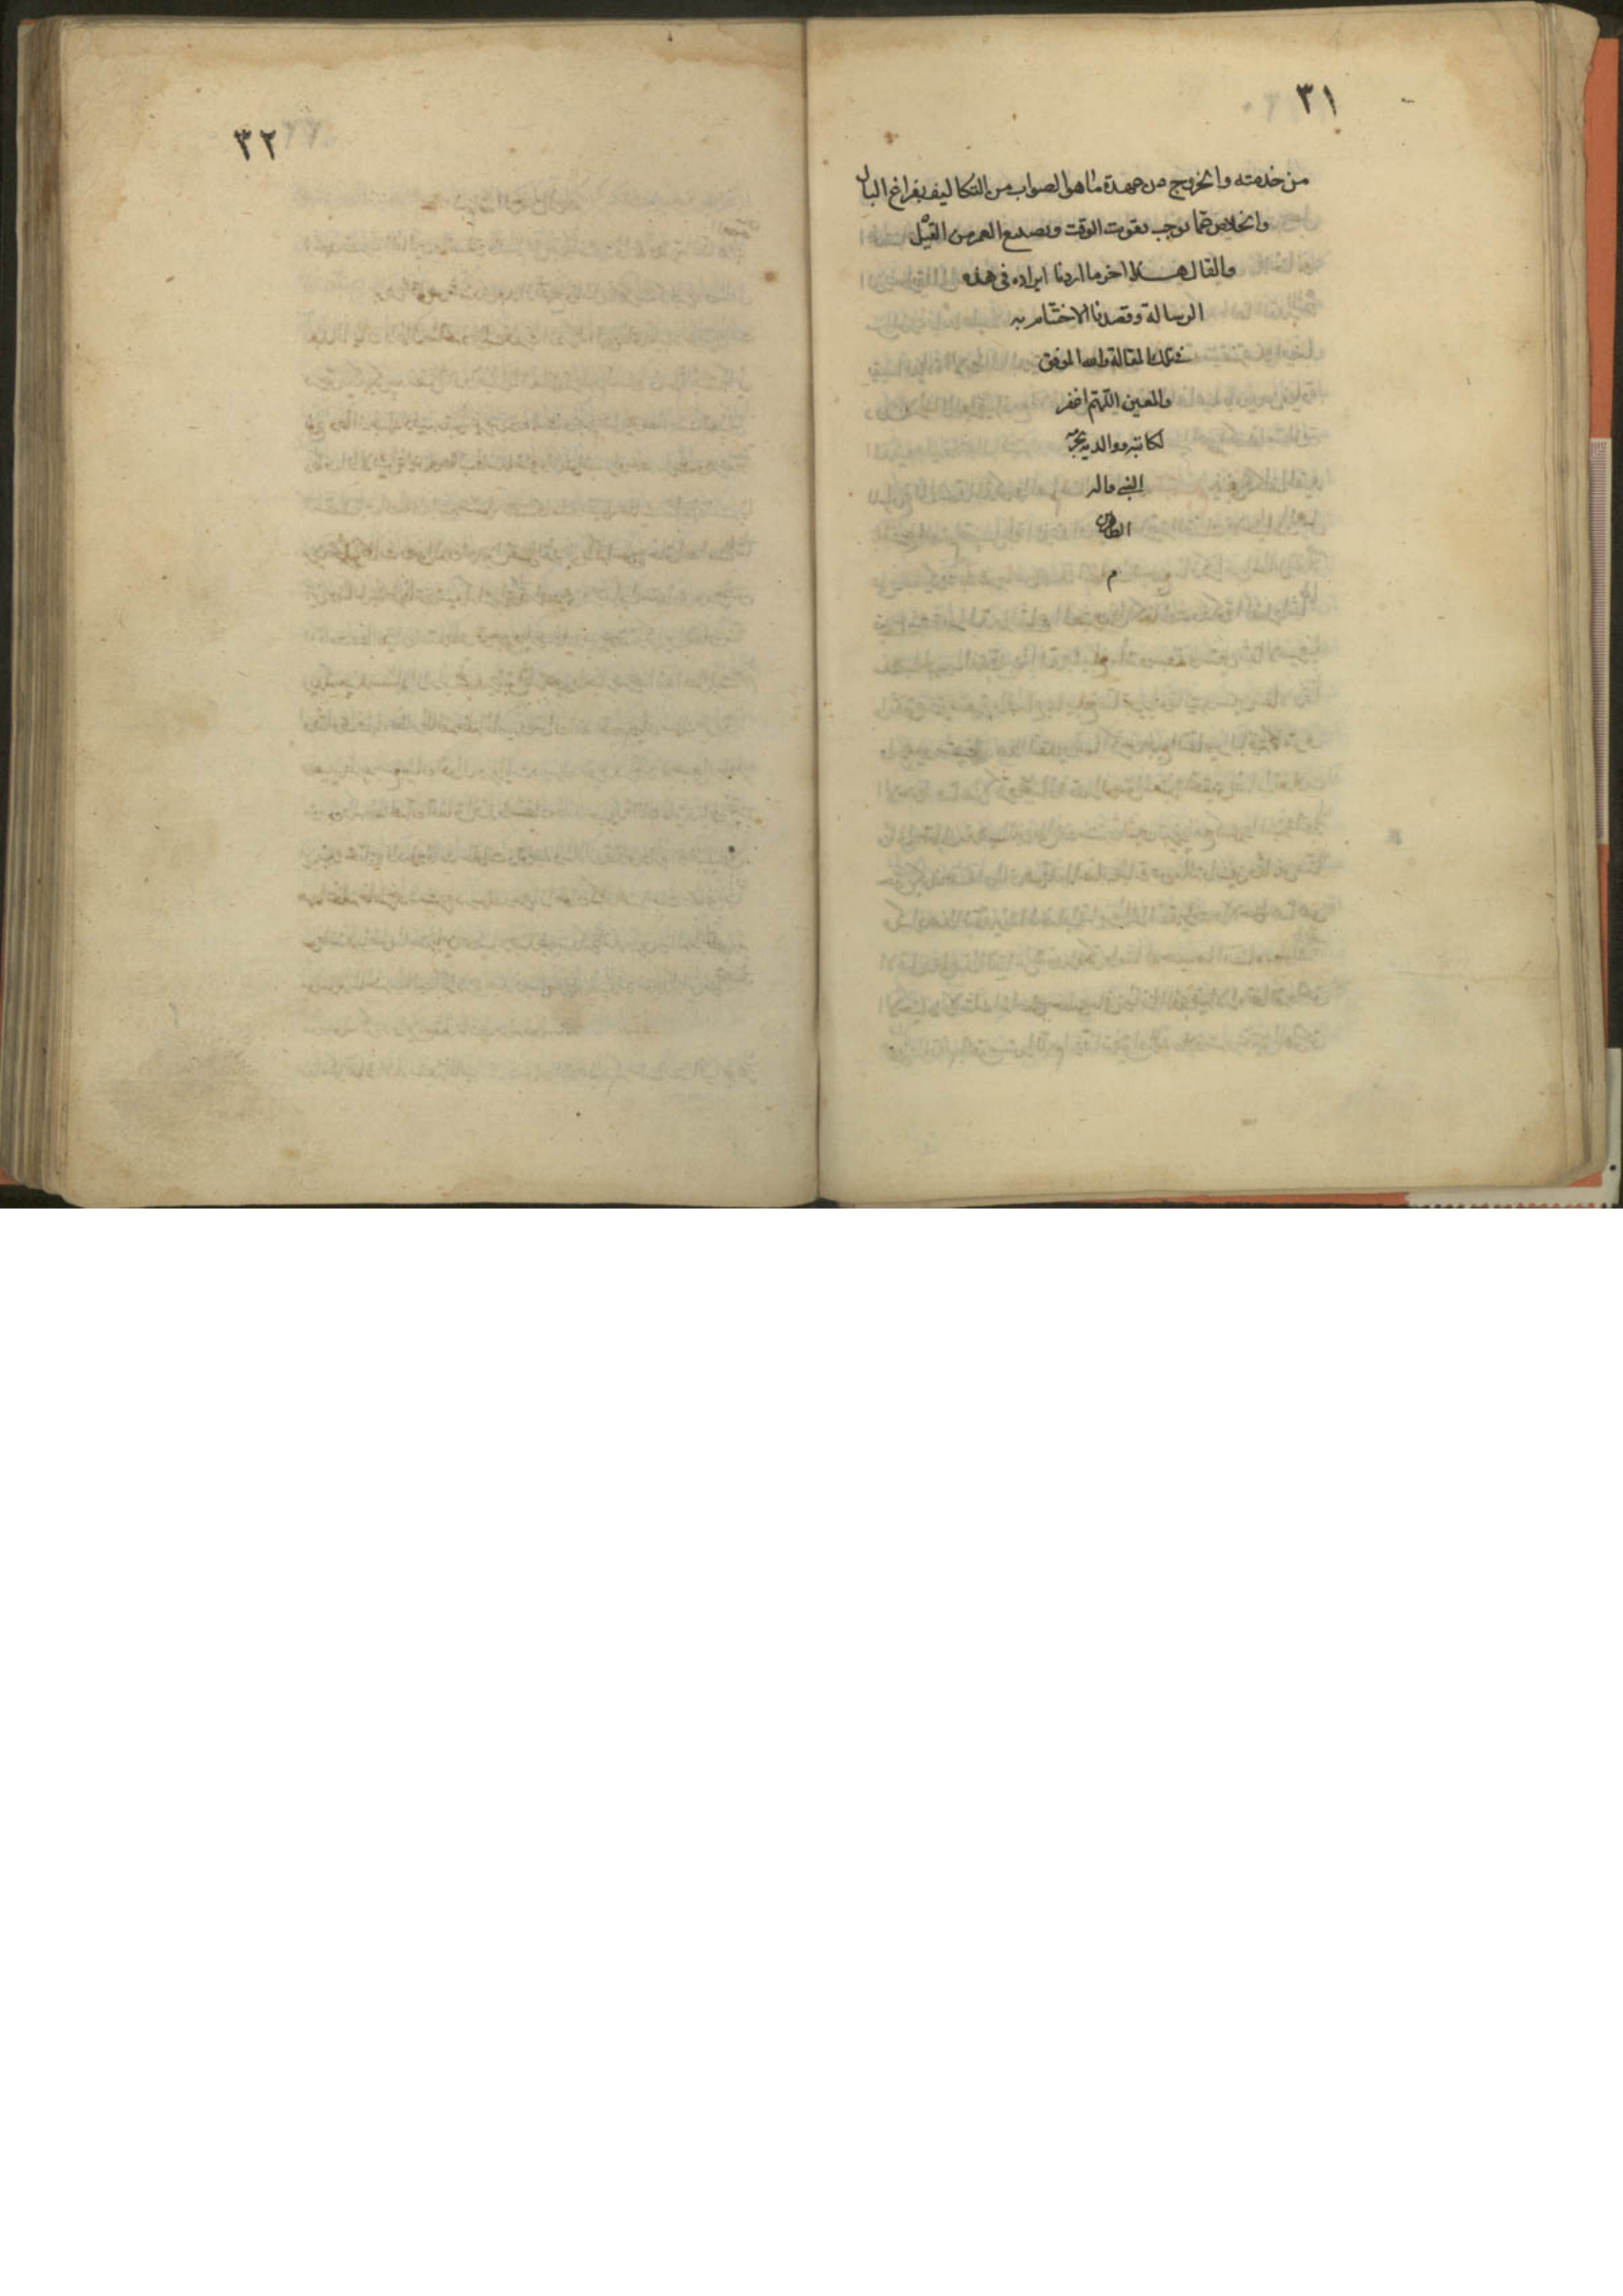 ٣١
من خدمته والخروج من عهدة ما هو الصواب من التكاليف بفراغ البال
والخلاص عما يوجب تفويت الوقت وتضييع العمر من القيل
والقال هذا اخر ما اردنا ايراده في هذه
الرسالة وقصدنا الاختتام به
في تلك المقالة والله الموفق
والمعين اللهم اغفر
لكاتبه ووالديه بحق
النبي واله
الطاهرين
م
٣٢